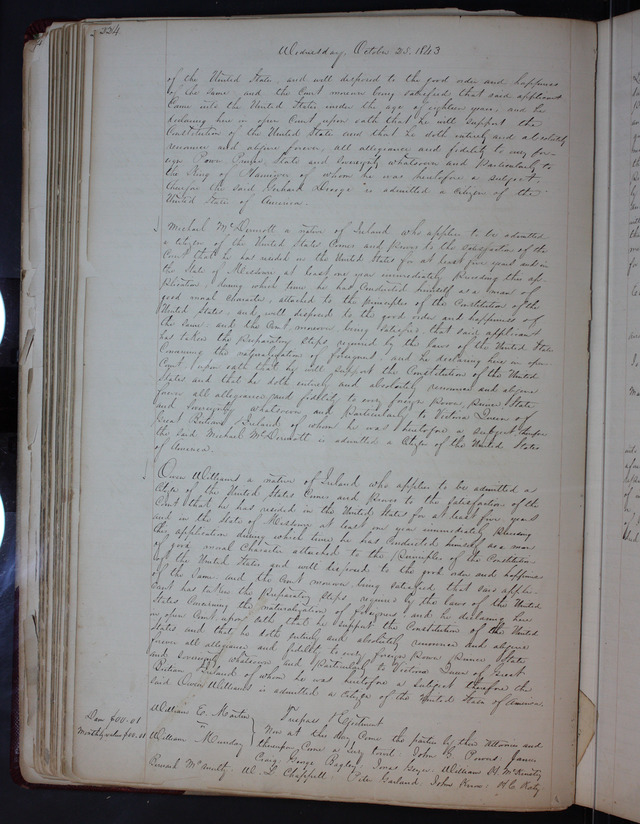 224
Wednesday, October 25. 1843
of the United States, and well disposed to the good order and happiness
of the same. and the Court moreover being satisfied that said applicant
Came into the United States under the age of eighteen years, and he
declaring here in open Court upon oath that he will support the
Constitution of the United States and that he doth entirely and absolutely
renounce and abjure forever, all allegiance and fidelity to every for-
eign Power Prince, State and Sovereignty whatsoever and Particularly to
the King of Hannover of whom he was heretofore a subject
therefor the said Gerhark is admitted a Citizen of the
United States of America.
Michael McDermott a native of Ireland who applies to be admitted
a Citizen of the United States Comes and proves to the satisfaction of the
Court that he has resided in the United States for at least five years and in
the State of Missouri at least one year immediately Preceding this ap-
plication, during which time he has Conducted himself as a man of
good moral Character, attached to the principles of the Constitution of the
United States, and well disposed to the good order and happiness of
the same. and the Court moreover being satisfied, that said applicant
has taken the Preparatory steps, required by the laws of the United States
Concerning the naturalization of foreigners, and he declaring here in open
Court upon oath that he will support the Constitution of the United
States and that he doth entirely and absolutely renounce and abjure
forever all allegiance and fidelity to every foreign Power Prince State
and Sovereignty whatsoever and Particularly to Victoria Queen of
Great Britain & Ireland of whom he was heretofore a subject therefore
the said Michael McDermott is admitted a Citizen of the United States
of America.
Owen Williams a native of Ireland who applies to be admitted a
Citizen of the United States Comes and proves to the satisfaction of the
Court that he has resided in the United States for at least five years
and in the State of Missouri at least one year immediately Preceding
this application during which time he has Conducted himself as a man
of good moral Character attached to the Principles of the Constitution
of the United States and well disposed to the good order and happiness
of the same. and the Court moreover being satisfied, that said appli-
cant has taken the Preparatory steps, required by the laws of the United
States Concerning the naturalization of foreigners, and he declaring here
in open Court upon oath, that he support the Constitution of the United
States and that he doth entirely and absolutely renounce and abjure
forever all allegiance and fidelity to every foreign Power Prince State
and Sovereignty whatsoever and Particularly to Victoria Queen of Great
Britain & Ireland of whom he was heretofore a subject therefore the
said Owen Williams is admitted a Citizen of the United States of America.
William E. Martin
Trespass & Ejectment
Dam $00.01
Monthly value $00.01
William Munday
Now at this day Come the parties by their attornies and
thereupon Came a Jury John G. James
Craig, George Bayley, Jonas Geyer, William H. McKinstry
Bernard McAnulty, W. L. Chappell, Peter Garland, John H. C.